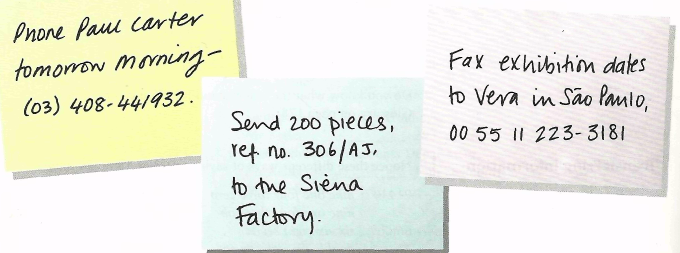 Phone Paul Carter
tomorrow morning –
(03) 408-441932.
Send 200 pieces,
ref no. 306/AJ,
to the Siena
Factory.
Fax exhibition dates
to Vera in São Paulo,
00 55 11 223-3181